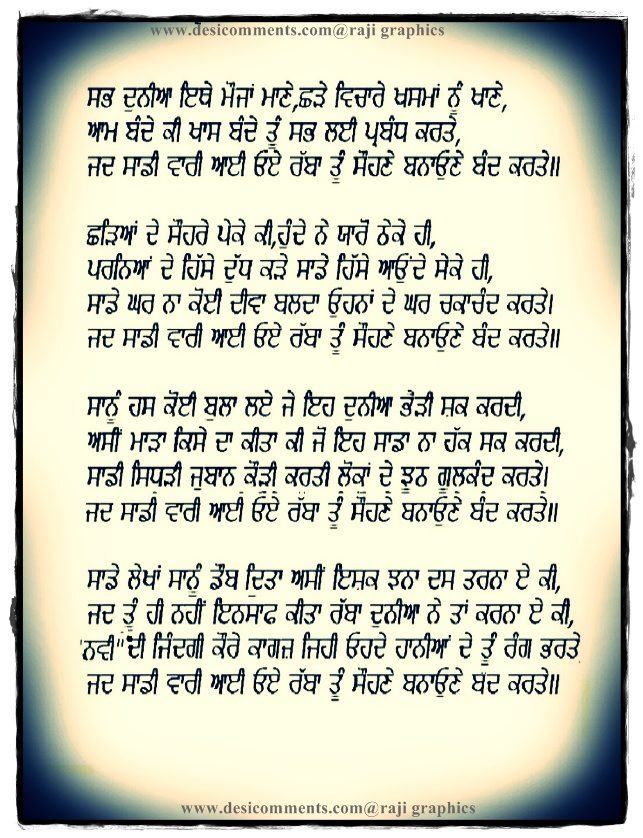 www.desicomments.com@raji graphics
ਸਭ ਦੁਨੀਆ ਇਥੇ ਮੌਜਾਂ ਮਾਣੇ,ਛੜੇ ਵਿਚਾਰੇ ਖਸਮਾਂ ਨੂੰ ਖਾਣੇ,
ਆਮ ਬੰਦੇ ਕੀ ਖਾਸ ਬੰਦੇ ਤੂੰ ਸਭ ਲਈ ਪ੍ਰਬੰਧ ਕਰਤੇ,
ਜਦ ਸਾਡੀ ਵਾਰੀ ਆਈ ਓਏ ਰੱਬਾ ਤੂੰ ਸੌਹਣੇ ਬਨਾਓੁਣੇ ਬੰਦ ਕਰਤੇ॥
ਛੜਿਆਂ ਦੇ ਸੌਹਰੇ ਪੇਕੇ ਕੀ,ਹੁੰਦੇ ਨੇ ਯਾਰੋ ਠੇਕੇ ਹੀ,
ਪਰਨਿਆਂ ਦੇ ਹਿੱਸੇ ਦੁੱਧ ਕੜੇ ਸਾਡੇ ਹਿੱਸੇ ਆਓੁਂਦੇ ਸੇਕੇ ਹੀ,
ਸਾਡੇ ਘਰ ਨਾ ਕੋਈ ਦੀਵਾ ਬਲਦਾ ਓੁਹਨਾਂ ਦੇ ਘਰ ਚਕਾਚੰਦ ਕਰਤੇ।
ਜਦ ਸਾਡੀ ਵਾਰੀ ਆਈ ਓਏ ਰੱਬਾ ਤੂੰ ਸੌਹਣੇ ਬਨਾਓੁਣੇ ਬੰਦ ਕਰਤੇ॥
ਸਾਨੂੰ ਹਸ ਕੋਈ ਬੁਲਾ ਲਏ ਜੇ ਇਹ ਦੁਨੀਆ ਭੈੜੀ ਸ਼ਕ ਕਰਦੀ,
ਅਸੀਂ ਮਾੜਾ ਕਿਸੇ ਦਾ ਕੀਤਾ ਕੀ ਜੋ ਇਹ ਸਾਡਾ ਨਾ ਹੱਕ ਸਕ ਕਰਦੀ,
ਸਾਡੀ ਸਿਧੜੀ ਜੁਬਾਨ ਕੌੜੀ ਕਰਤੀ ਲੋਕਾਂ ਦੇ ਝੂਠ ਗੂਲਕੰਦ ਕਰਤੇ।
ਜਦ ਸਾਡੀ ਵਾਰੀ ਆਈ ਓਏ ਰੱਬਾ ਤੂੰ ਸੌਹਣੇ ਬਨਾਓੁਣੇ ਬੰਦ ਕਰਤੇ॥
ਸਾਡੇ ਲੇਖਾਂ ਸਾਨੂੰ ਡੌਬ ਦਿਤਾ ਅਸੀਂ ਇਸ਼ਕ ਝਨਾ ਦਸ ਤਰਨਾ ਏ ਕੀ,
ਜਦ ਤੂੰ ਹੀ ਨਹੀਂ ਇਨਸਾਫ ਕੀਤਾ ਰੱਬਾ ਦੁਨੀਆ ਨੇ ਤਾਂ ਕਰਨਾ ਏ ਕੀ,
'ਨਵੀ" ਦੀ ਜਿੰਦਗੀ ਕੌਰੇ ਕਾਗਜ਼ ਜਿਹੀ ਓਹਦੇ ਹਾਨੀਆਂ ਦੇ ਤੂੰ ਰੰਗ ਭਰਤੇ
ਜਦ ਸਾਡੀ ਵਾਰੀ ਆਈ ਓਏ ਰੱਬਾ ਤੂੰ ਸੌਹਣੇ ਬਨਾਓੁਣੇ ਬੰਦ ਕਰਤੇ॥
www.desicomments.com@raji graphics